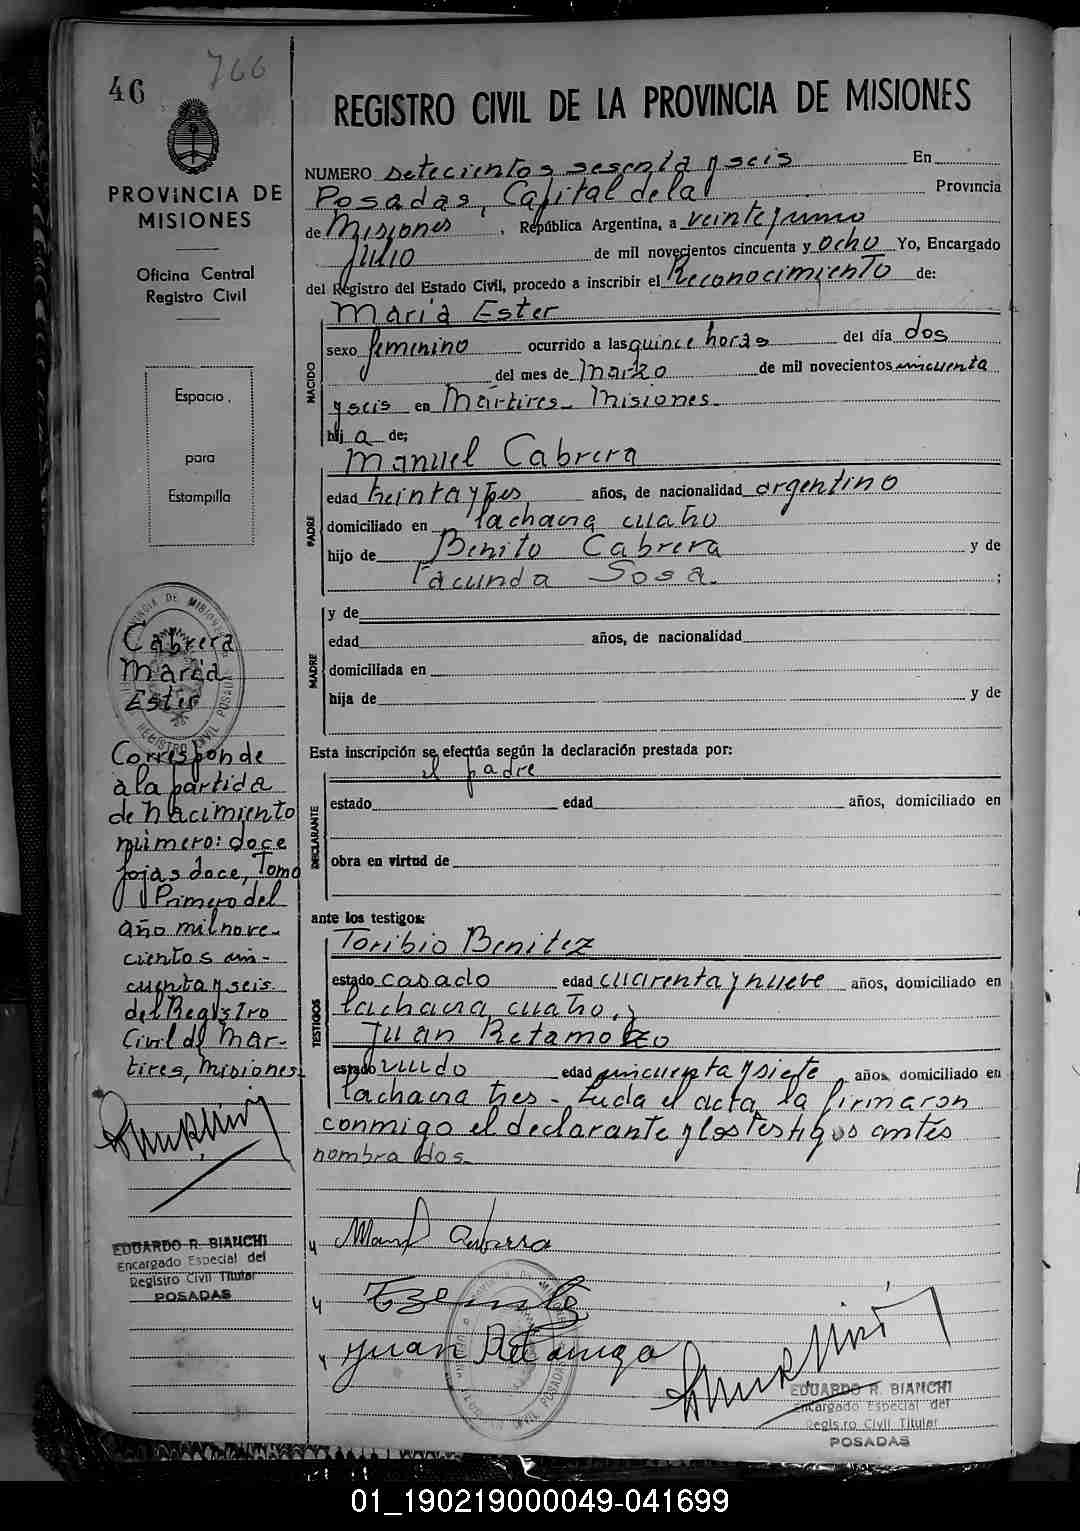 46
766
PROVINCIA DE
MISIONES
Oficina Central
Registro Civil
Espacio
para
Estampilla
Cabrera
María
Ester
Corresponde
a la partida
de nacimiento
número: doce
fojas doce, Tomo
Primero del
año mil nove-
cientos cin-
cuenta y seis
del Registro
Civil de Már-
tires, Misiones.
EDUARDO R. BIANCHI
Encargado Especial del
Registro Civil Titular
POSADAS
REGISTRO CIVIL DE LA PROVINCIA DE MISIONES
NUMERO setecientos sesenta y seis En
Posadas, Capital de la Provincia
de Misiones, República Argentina, a veintejuno
Julio de mil novecientos cincuenta y ocho Yo, Encargado
del Registro del Estado Civil, procedo a inscribir el Reconocimiento de:
NACIDO
María Ester
sexo femenino ocurrido a las quince horas del día dos
del mes de Marzo de mil novecientos cincuenta
y seis en Mártires - Misiones.
hij a de;
PADRE
Manuel Cabrera
edad treinta y tres años, de nacionalidad argentino
domiciliado en la chacra cuatro
hijo de Benito Cabrera y de
Facunda Sosa. ;
MADRE
y de
edad años, de nacionalidad
domiciliada en
hija de y de
Esta inscripción se efectúa según la declaración prestada por:
DECLARANTE
el padre
estado edad años, domiciliado en
obra en virtud de
ante los testigos:
TESTIGOS
Toribio Benitez
estado casado edad cuarenta y nueve años, domiciliado en
la chacra cuatro, y
Juan Retamozo
estado viudo edad cincuenta y siete años, domiciliado en
la chacra tres - Leída el acta, la firmaron
conmigo el declarante y los testigos antes
nombrados.
Manuel Cabrera
T Benitez
Juan Retamozo
EDUARDO R. BIANCHI
Encargado Especial del
Registro Civil Titular
POSADAS
01_190219000049-041699